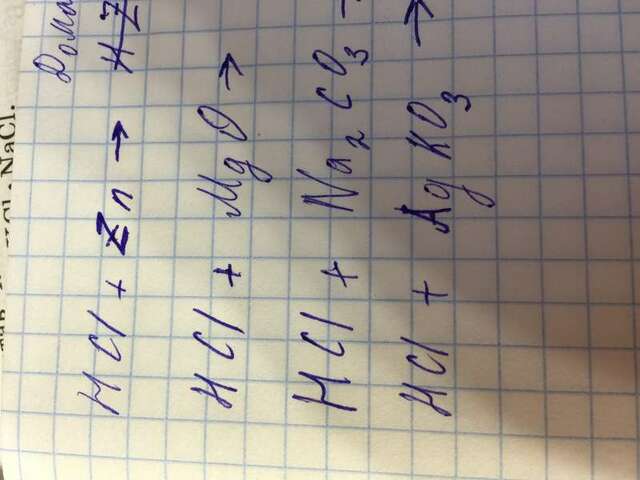 HCl, NaCl.
Дома
HCl + Zn →
HCl + MgO →
HCl + Na₂CO₃ →
HCl + AgKO₃ →